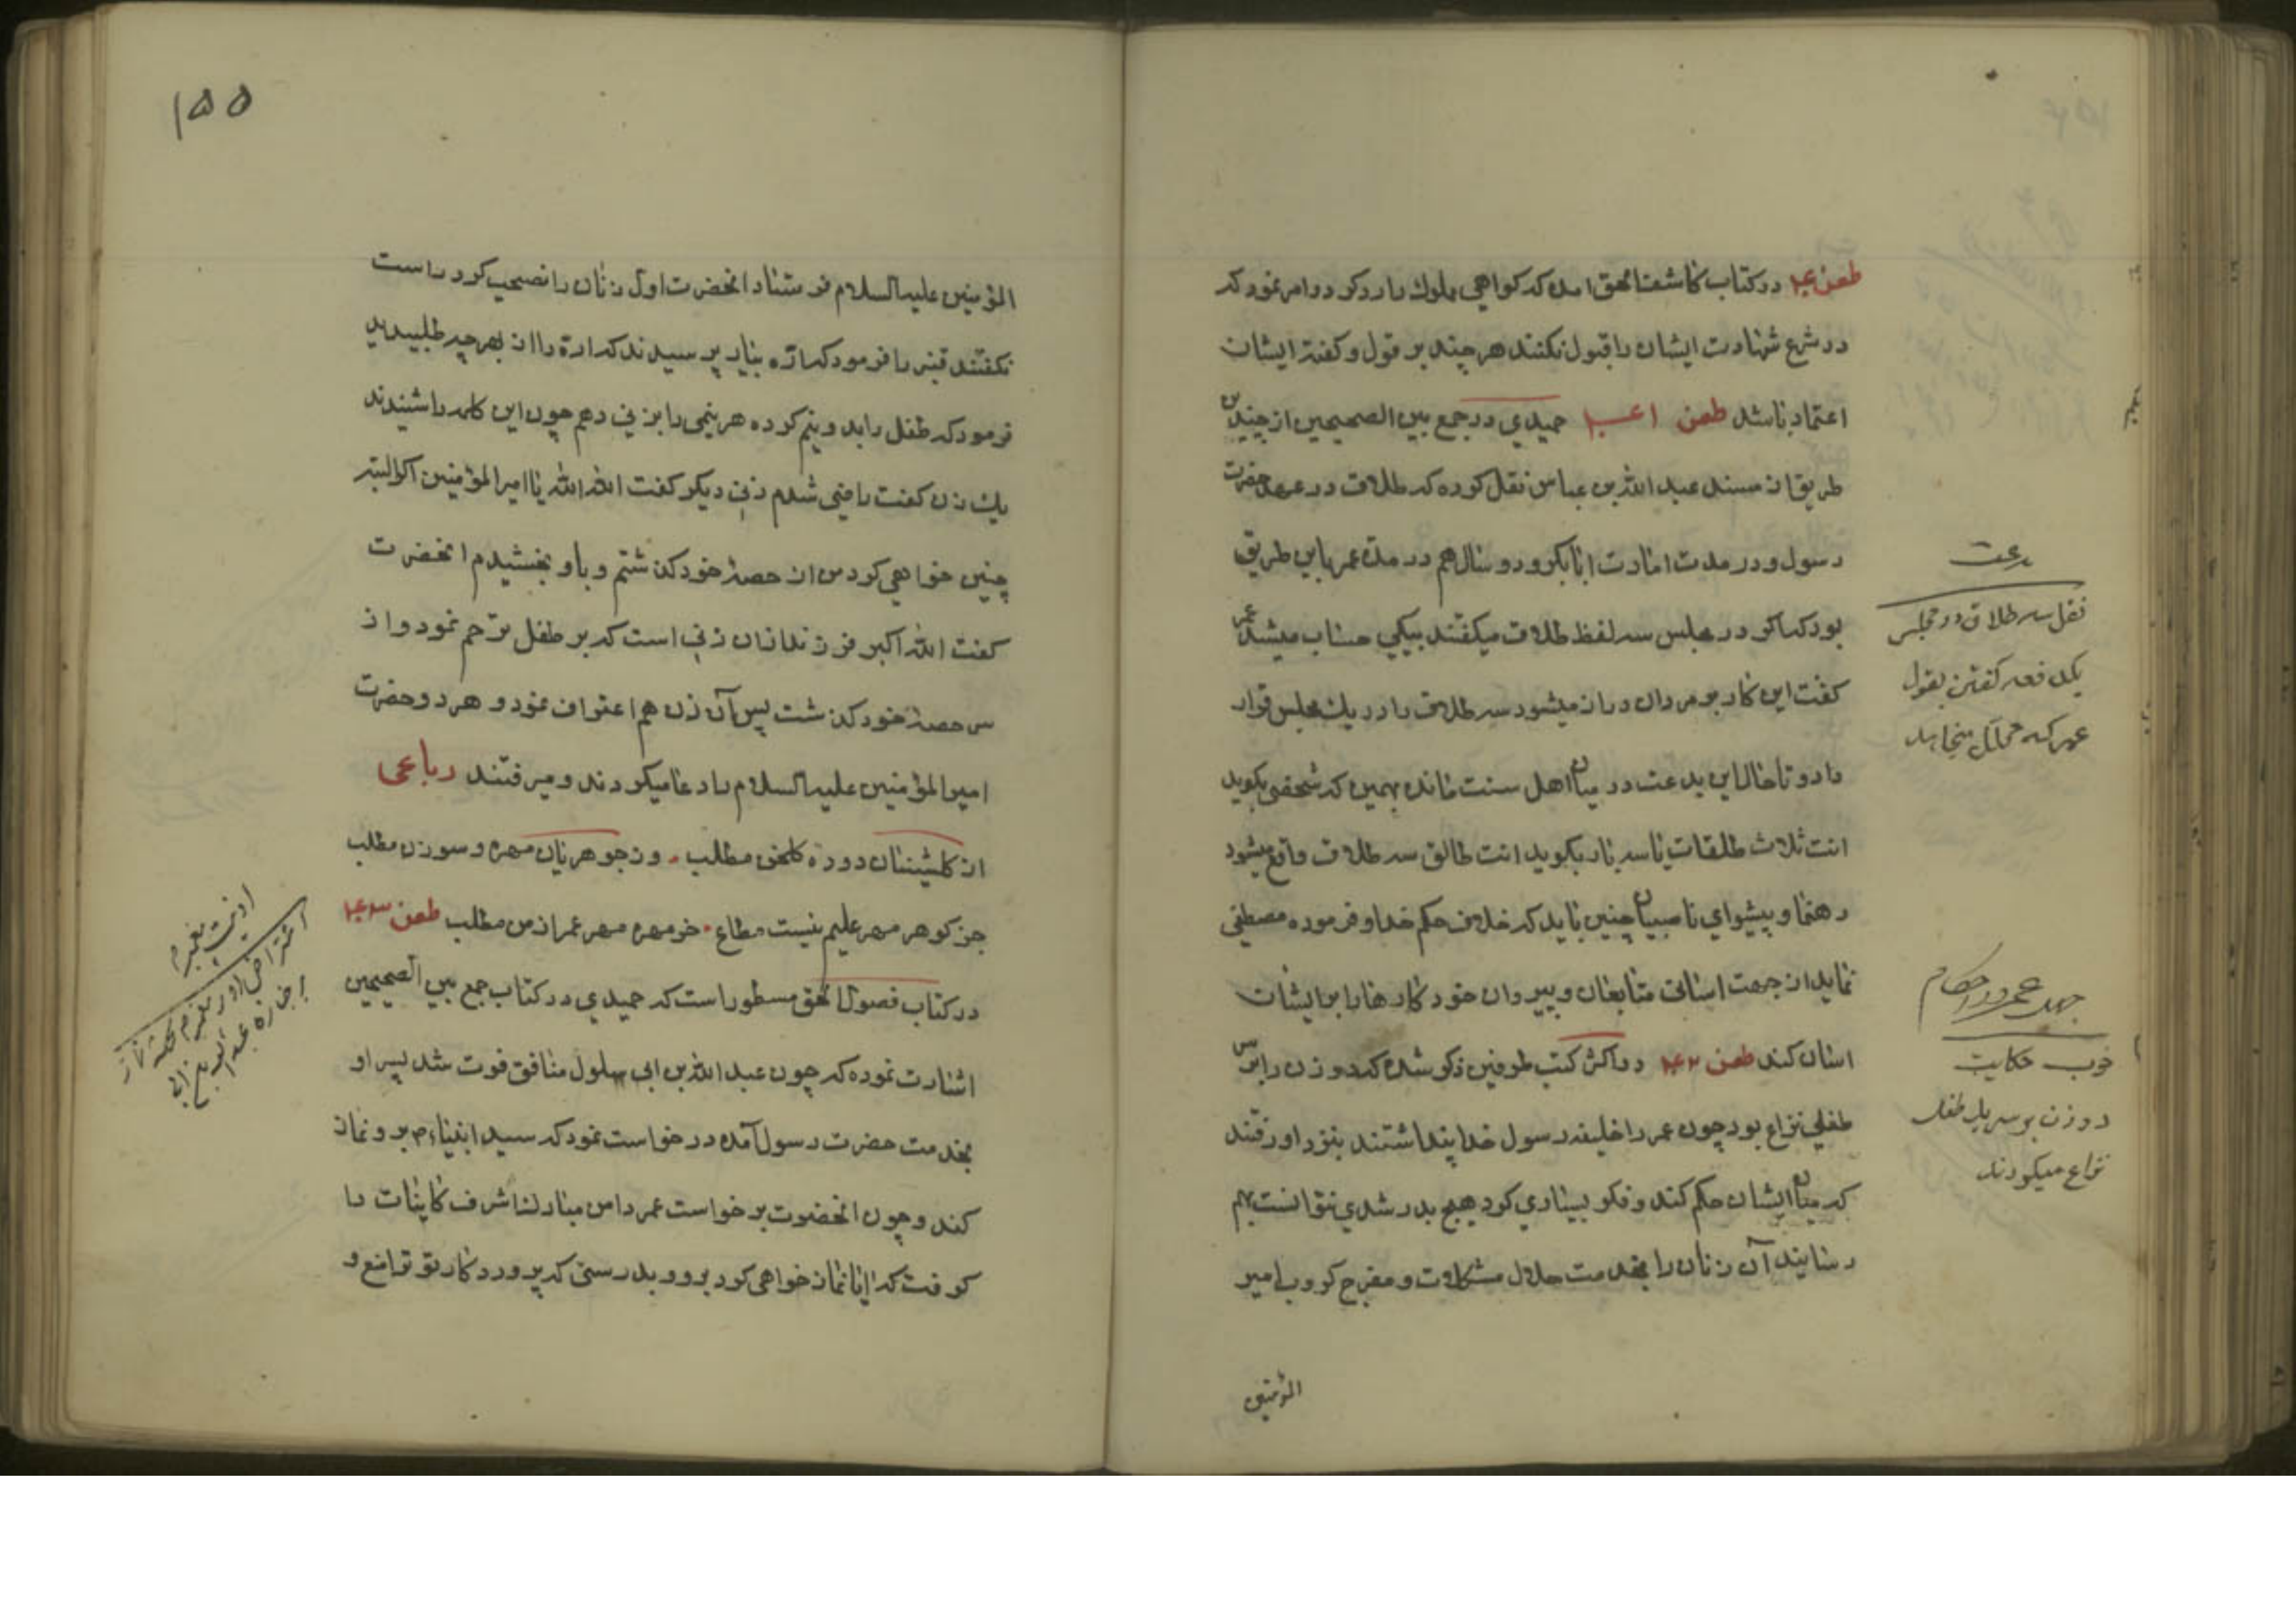 طعن ۴۰ در کتاب کاشف الحق امده که کواهی مملوک را رد کرد و امر نمود که
در شرع شهادت ایشان را قبول نکنند هرچند بر قول و کفته ایشان
اعتماد باشد طعن ۴۱ حمیدی در جمع بین الصحیحین از چندین
طریق از مسند عبد الله بن عباس نقل کرده که طلاق در عهد حضرت
رسول و در مدت امارت ابابکر و دو سال هم در مدت عمر باین طریق
بود که اکر در مجلس سه لفظ طلاق میکفتند بیکی حساب میشد عمر
کفت این کار بر مردان دراز میشود سه طلاق را در یک مجلس قرار
داد و تا حال این بدعت در میان اهل سنت مانده بهمین که شخصی بکوید
انت ثلاث طلقات یا سه بار بکوید انت طالق سه طلاق واقع میشود
رهنما و پیشوای ناصبیان چنین باید که خلاف حکم خدا و فرموده مصطفی
نماید از جهت اسانی متابعان و پیروان خود کارها را بر ایشان
اسان کند طعن ۴۲ در اکثر کتب طرفین ذکر شده که دو زن را بر سر
طفلی نزاع بود چون عمر را خلیفه رسول خدا پنداشتند بنزد او رفتند
که میان ایشان حکم کند و فکر بسیاری کرد هیچ بدر شدی نتوانست بهم
رسانید آن زنان را بخدمت حلال مشکلات و مفرح کروب امیر
المؤمنین
بدعت
نقل سه طلاق در مجلس
یکدفعه کفتن بقول
عمر که محلل میخاهد
جهل عمر در احکام
خوب حکایت
دو زن بر سر یک طفل
نزاع میکردند
۱۵۵
المؤمنین علیه السلام فرستاد انحضرت اول زنان را نصیحت کرد راست
نکفتند قنبر را فرمود که ارّه بیار پرسیدند که ارّه را از بهر چه طلبیدید
فرمود که طفل را بدو نیم کرده هر نیمی را بزنی دهم چون این کلمه را شنیدند
یک زن کفت راضی شدم زنی دیکر کفت الله الله یا امیر المؤمنین اکر البته
چنین خواهی کرد من از حصهٔ خود کذشتم و باو بخشیدم انحضرت
کفت الله اکبر فرزند از ان زنی است که بر طفل ترحم نمود و از
سر حصهٔ خود کذشت پس آن زن هم اعتراف نمود و هر دو حضرت
امیر المؤمنین علیه السلام را دعا میکردند و میرفتند رباعی
از کلشینان دوره کلخن مطلب وز جوهریان مهره و سوزن مطلب
جز کوهر مهر علیم نیست مطاع خر مهره مهر عمر از من مطلب طعن ۴۳
در کتاب فصول الحق مسطور است که حمیدی در کتاب جمع بین الصحیحین
اشارت نموده که چون عبد الله بن ابی سلول منافق فوت شد پسر او
بخدمت حضرت رسول آمده درخواست نمود که سید انبیاء بر و نماز
کند و چون انحضرت برخواست عمر دامن مبارک اشرف کاینات را
کرفت که ایا نماز خواهی کرد برو و بدرستی که پروردکار تو ترا منع و
اذیت پیغمبر
اعتراض او بر پیغمبر نماز
بر جنازه عبد الله بن ابی